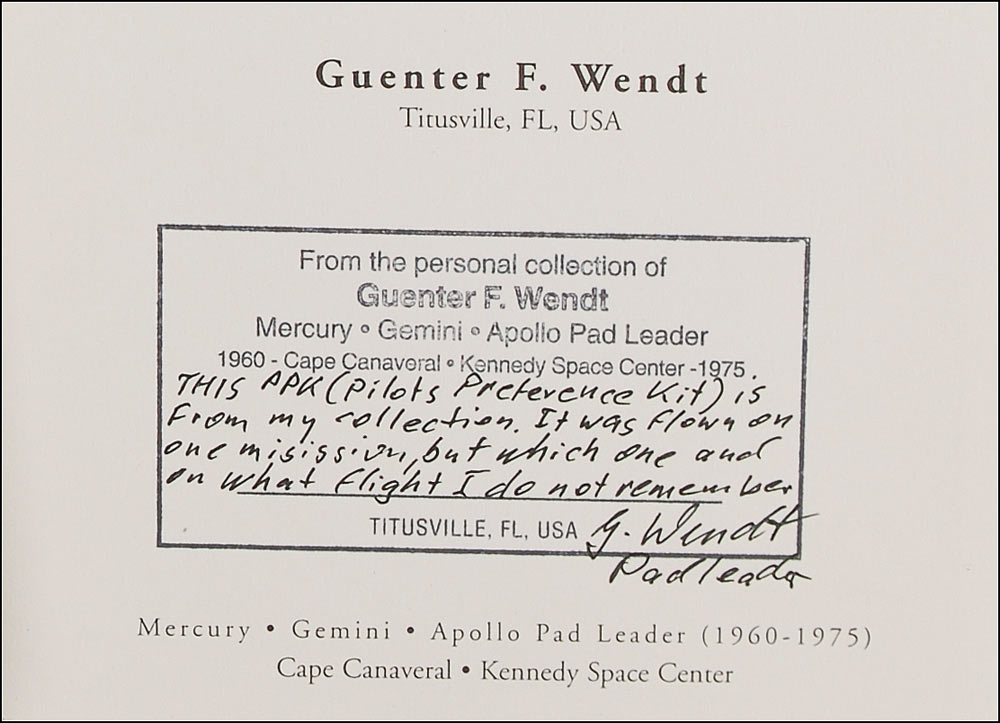 Guenter F. Wendt
Titusville, FL, USA
From the personal collection of
Guenter F. Wendt
Mercury • Gemini • Apollo Pad Leader
1960 - Cape Canaveral • Kennedy Space Center -1975.
THIS PPK (Pilots Preference Kit) is
From my collection. It was flown on
one misission, but which one and
on what flight I do not remember
TITUSVILLE, FL, USA G. Wendt
Padleader
Mercury • Gemini • Apollo Pad Leader (1960-1975)
Cape Canaveral • Kennedy Space Center